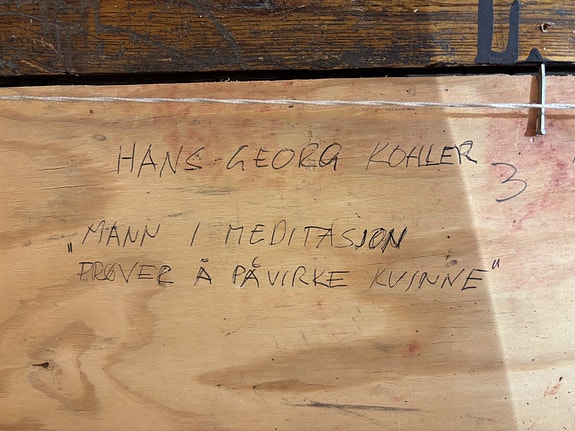 HANS-GEORG KOHLER
3
„MANN I MEDITASJON
PRØVER Å PÅVIRKE KVINNE"